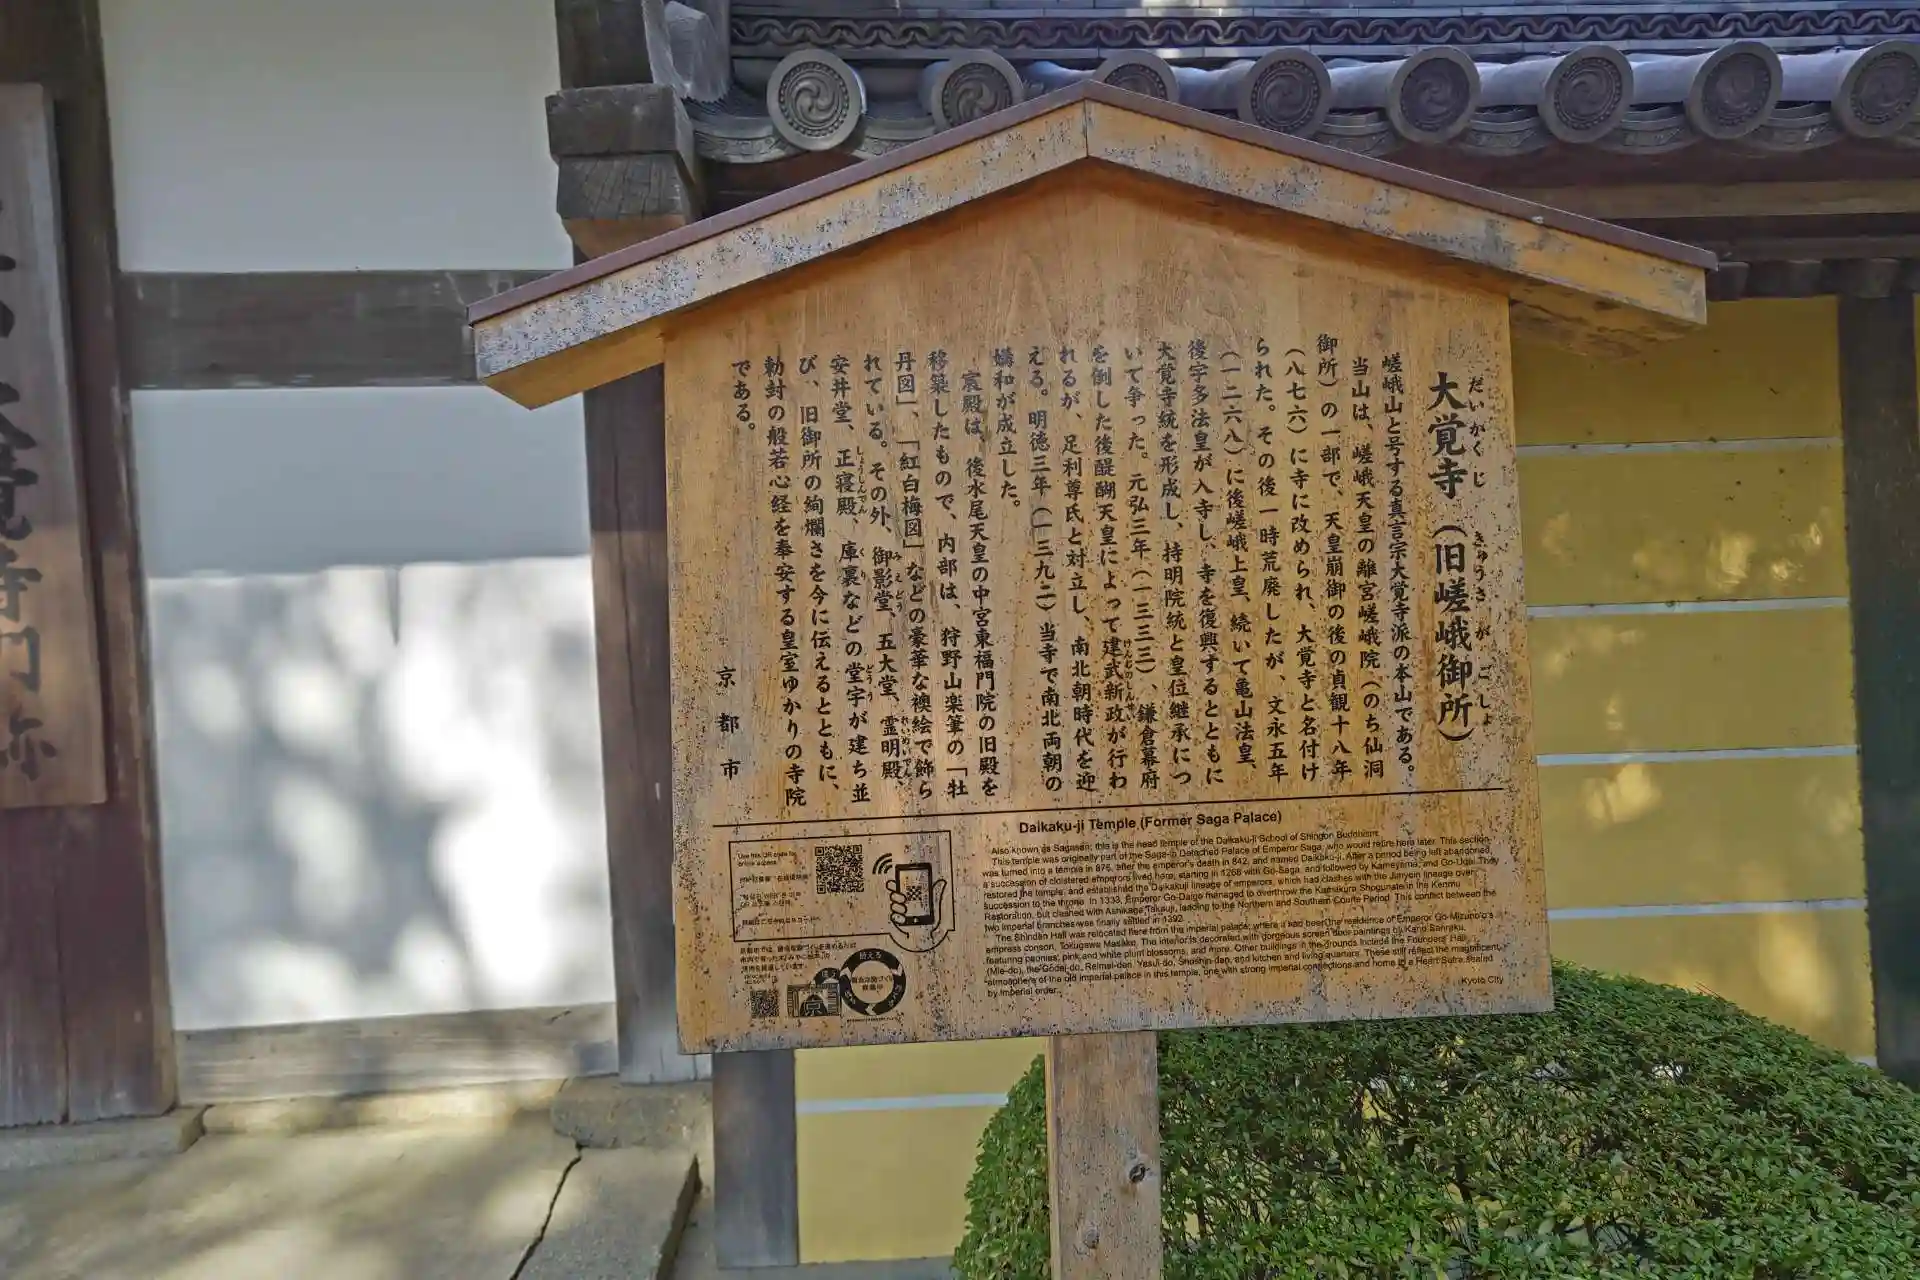 大覚寺（旧嵯峨御所）
だいかくじ　きゅうさがごしょ
嵯峨山と号する真言宗大覚寺派の本山である。
当山は、嵯峨天皇の離宮嵯峨院（のち仙洞
御所）の一部で、天皇崩御の後の貞観十八年
（八七六）に寺に改められ、大覚寺と名付け
られた。その後一時荒廃したが、文永五年
（一二六八）に後嵯峨上皇、続いて亀山法皇、
後宇多法皇が入寺し、寺を復興するとともに
大覚寺統を形成し、持明院統と皇位継承につ
いて争った。元弘三年（一三三三）、鎌倉幕府
を倒した後醍醐天皇によって建武新政が行わ
けんむのしんせい
れるが、足利尊氏と対立し、南北朝時代を迎
える。明徳三年（一三九二）当寺で南北両朝の
媾和が成立した。
宸殿は、後水尾天皇の中宮東福門院の旧殿を
移築したもので、内部は、狩野山楽筆の「牡
丹図」、「紅白梅図」などの豪華な襖絵で飾ら
れている。その外、御影堂、五大堂、霊明殿、
みえどう　れいめいでん
安井堂、正寝殿、庫裏などの堂宇が建ち並
しょうしんでん　くり　どうう
び、旧御所の絢爛さを今に伝えるとともに、
勅封の般若心経を奉安する皇室ゆかりの寺院
である。
京都市
Daikaku-ji Temple (Former Saga Palace)
Also known as Sagasan, this is the head temple of the Daikaku-ji School of Shingon Buddhism.
This temple was originally part of the Saga-in Detached Palace of Emperor Saga, who would retire here later. This section
was turned into a temple in 876, after the emperor's death in 842, and named Daikaku-ji. After a period being left abandoned,
a succession of cloistered emperors lived here, starting in 1268 with Go-Saga, and followed by Kameyama, and Go-Uda. They
restored the temple, and established the Daikakuji lineage of emperors, which had clashes with the Jimyoin lineage over
succession to the throne. In 1333, Emperor Go-Daigo managed to overthrow the Kamakura Shogunate in the Kenmu
Restoration, but clashed with Ashikaga Takauji, leading to the Northern and Southern Courts Period. This conflict between the
two imperial branches was finally settled in 1392.
The Shinden Hall was relocated here from the imperial palace, where it had been the residence of Emperor Go-Mizuno'o's
empress consort, Tokugawa Masako. The interior is decorated with gorgeous screen door paintings by Kano Sanraku,
featuring peonies, pink and white plum blossoms, and more. Other buildings in the grounds include the Founders' Hall
(Mie-do), the Godai-do, Reimei-den, Yasui-do, Shoshin-den, and kitchen and living quarters. These still reflect the magnificent
atmosphere of the old imperial palace in this temple, one with strong imperial connections and home to a Heart Sutra sealed
by imperial order.
Kyoto City
Use this QR code for
online access.